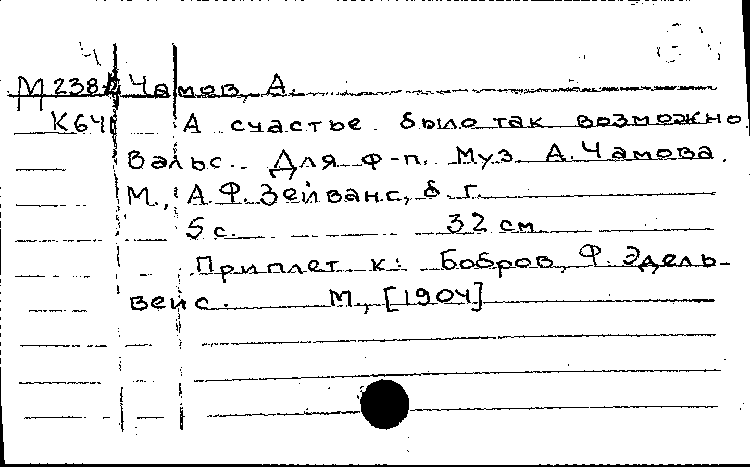 Ч
М 238 Чамов, А.
К641 А счастье было так возможно.
Вальс. Для ф-п. Муз. А. Чамова.
М., А.Ф. Зейванг, б. г.
5 с. 32 см
Приплет к: Бобров, Ф. Эдель-
вейс. М., [1904]